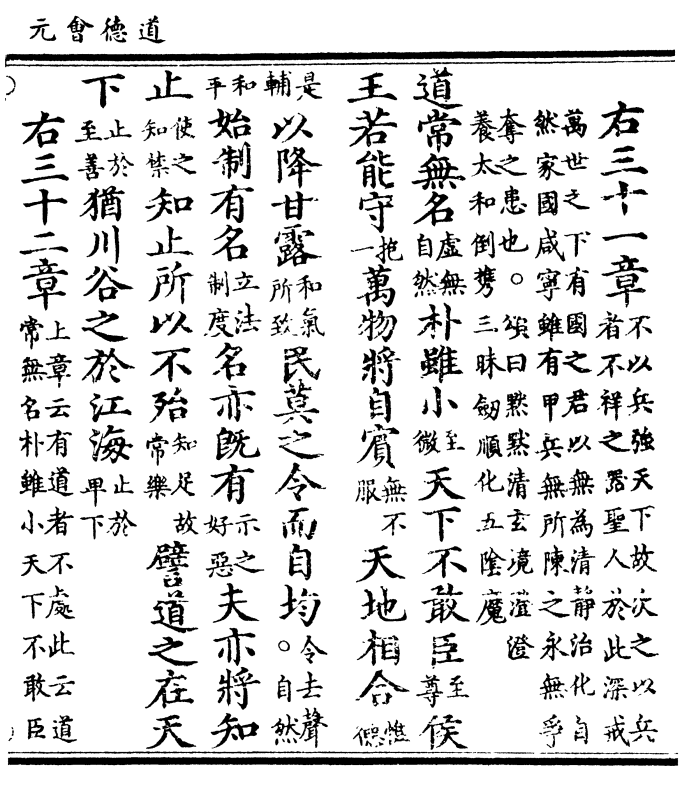 道德會元
右三十一章不以兵強天下故次之以兵者不祥之器聖人於此深戒
萬世之下有國之君以無為清靜治化自然家國咸寧雖有甲兵無所陳之永無爭
奪之患也。頌曰默默清玄境澄澄養太和倒携三昧劔順化五陰魔
道常無名虛無自然朴雖小至微天下不敢臣至尊侯
王若能守抱一萬物將自賓無不服天地相合惟德
是輔以降甘露和氣所致民莫之令而自均。令去聲自然
和平始制有名立法制度名亦旣有示之好惡夫亦將知
止使之知禁知止所以不殆知足故常樂譬道之在天
下止於至善猶川谷之於江海止於卑下
右三十二章上章云有道者不處此云道常無名朴雖小天下不敢臣